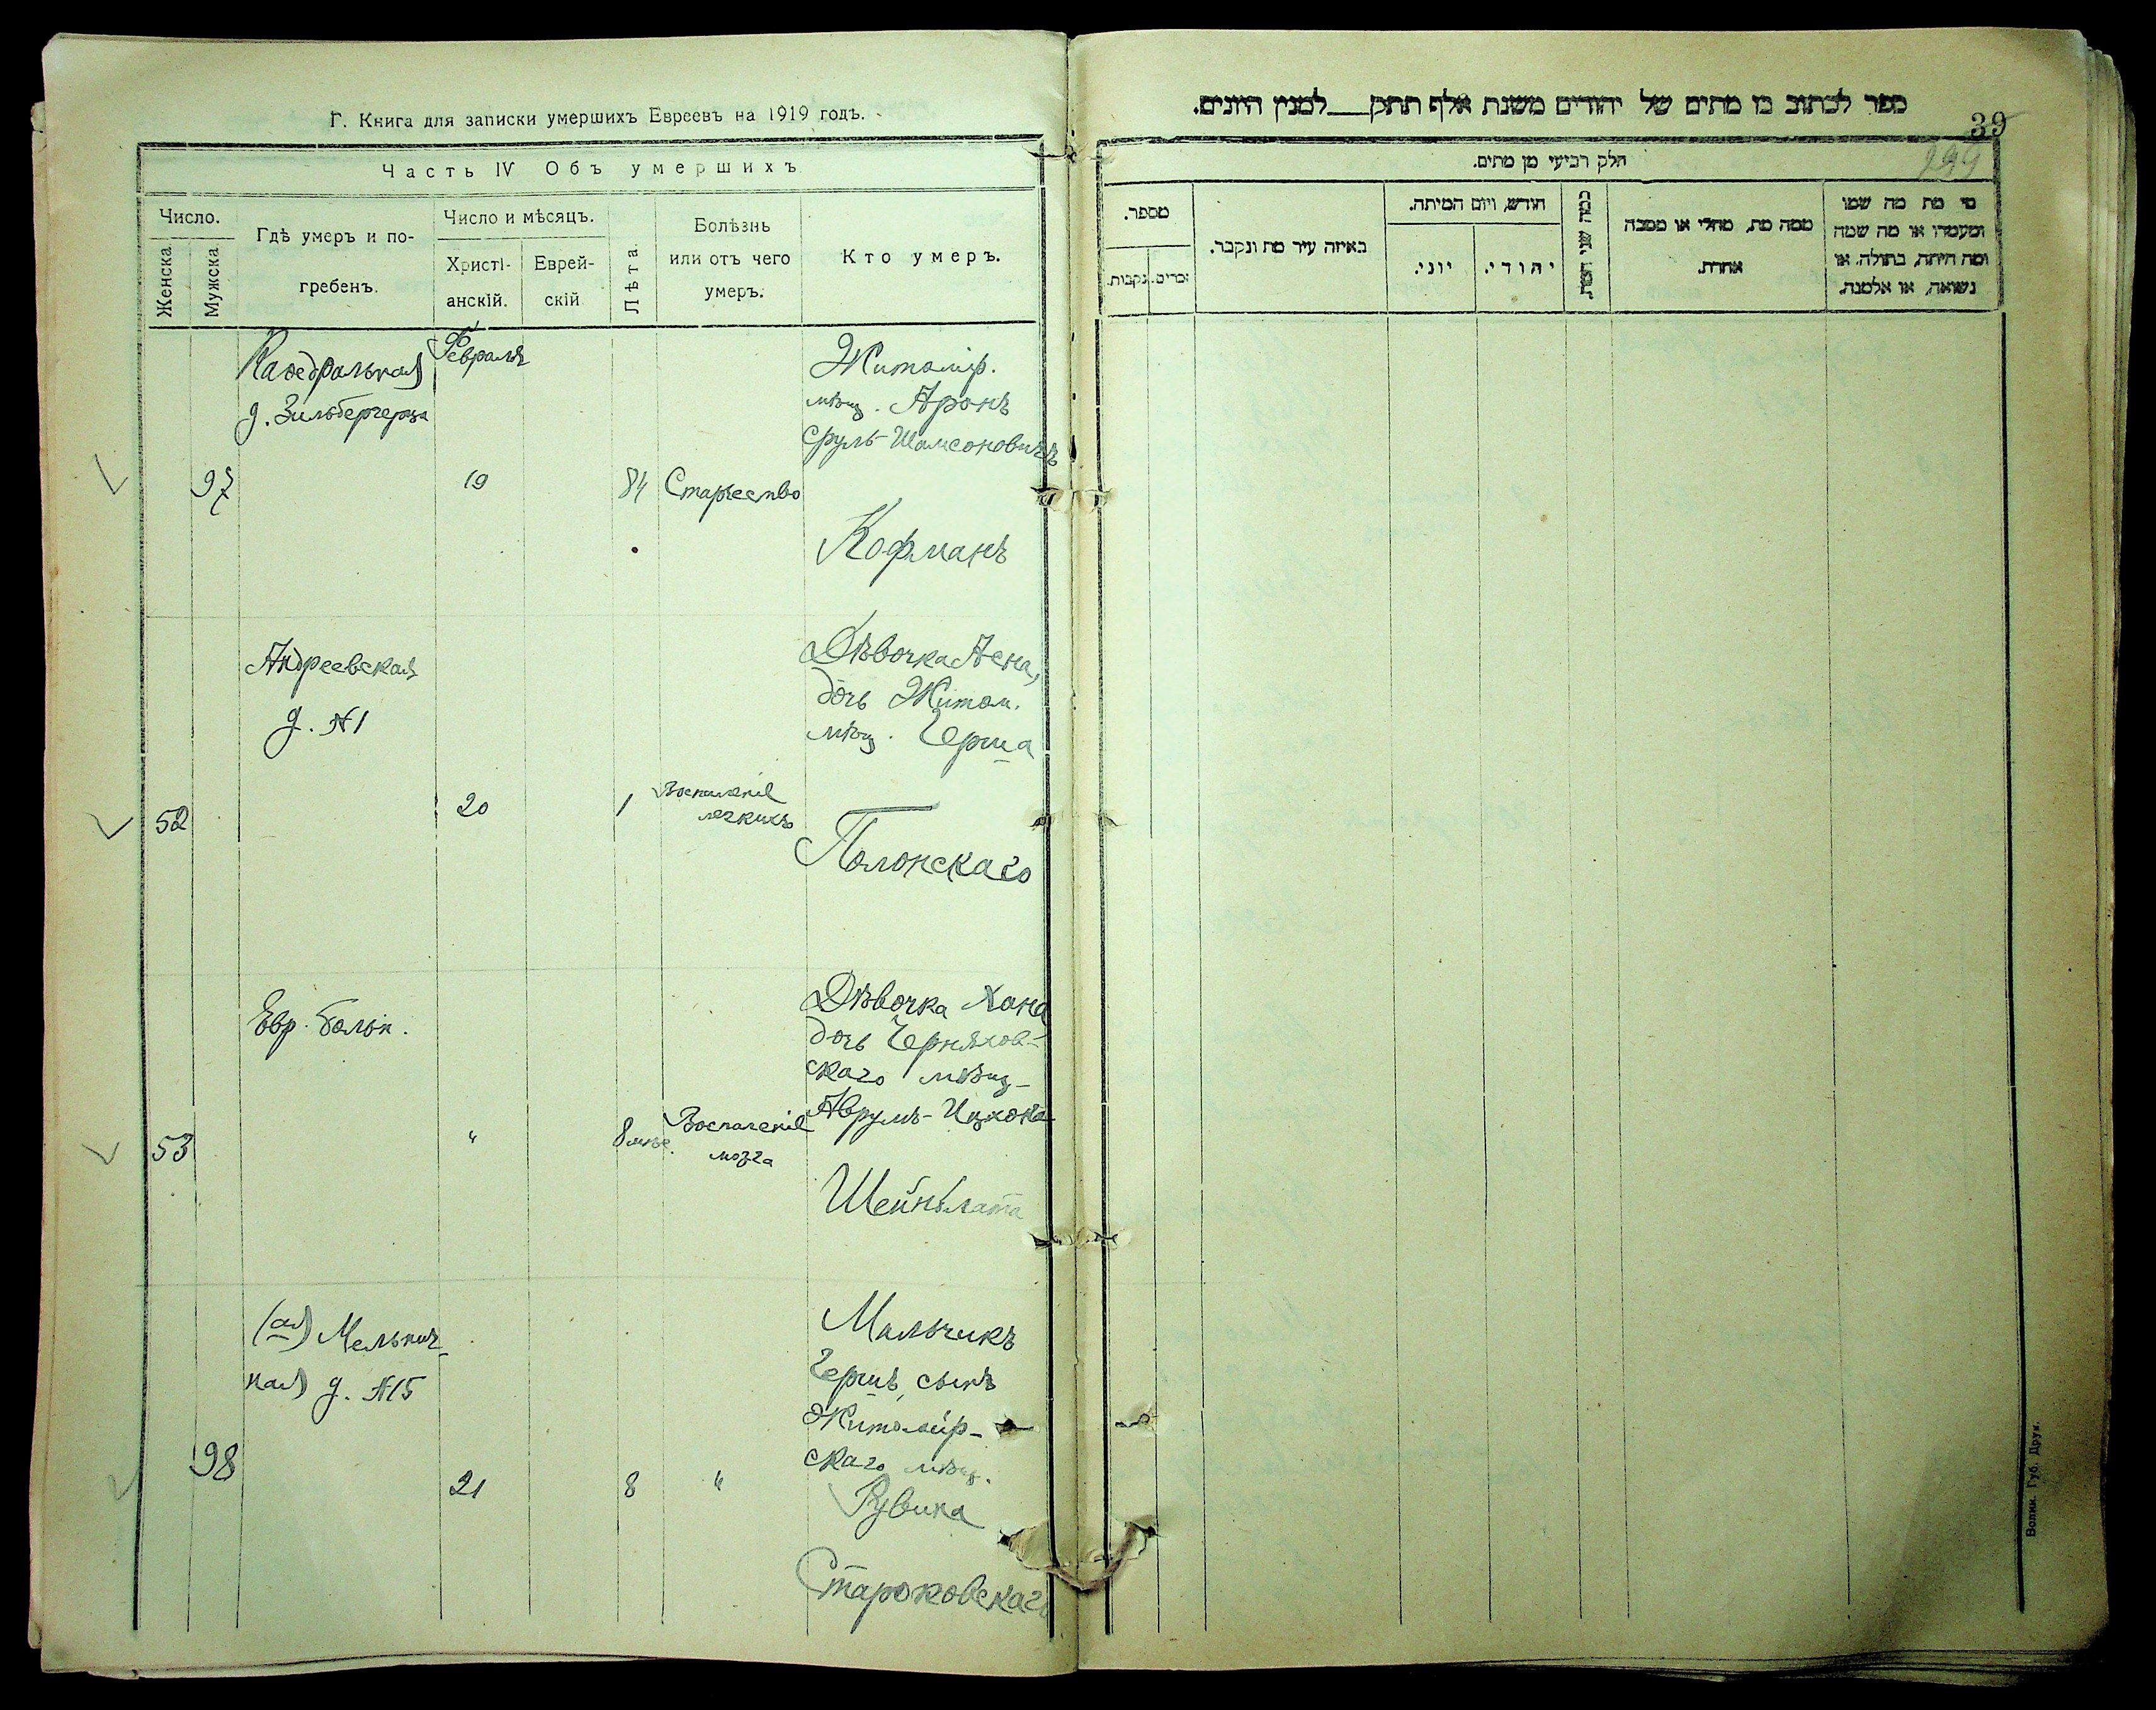 Г. Книга для записки умершихъ Евреевъ на 1919 годъ.
Часть IV Объ умершихъ
Число.
Женска
Мужска
Гдѣ умеръ и по-
гребенъ.
Число и мѣсяцъ.
Христі-
анскій.
Еврей-
скій
Лѣта
Болѣзнь
или отъ чего
умеръ.
Кто умеръ.
Каѳедральная
д. Зильбергерца
Февраля
97
19
84
Старчество
Житомір.
мѣщ. Аронъ
Сруль-Шамсоновичъ
Кофманъ
Андреевская
д. №1
52
20
1
Воспаленіе
легкихъ
Дѣвочка
дочь Житом.
мѣщ. Герша
Полонскаго
Евр. больн.
53
"
8 мѣс.
Воспаленіе
мозга
Дѣвочка Хана
дочь Черняхов-
скаго мѣщ-
Аврумъ-Ицхока
Шейнблата
Мельнич-
ная д. №15
98
21
8
"
Мальчикъ
Гершъ, сынъ
Житомір-
скаго мѣщ.
Рувина
Староковскаго
ספר לכתוב בו מתים של יהודים משנת אלף תתק___למנין היונים.
39
199
חלק רביעי מן מתים.
מספר.
זכרים.
נקבות.
באיזה עיר מת ונקבר.
חודש, ויום המיתה.
יוני.
יהודי.
כמה שני המת
ממה מת, מחלי או מסבה
אחרת.
מי מת מה שמו
ומעמדו או מה שמה
ומה היתה, בתולה, או
נשואה, או אלמנה.
Волин. Губ. Друк.